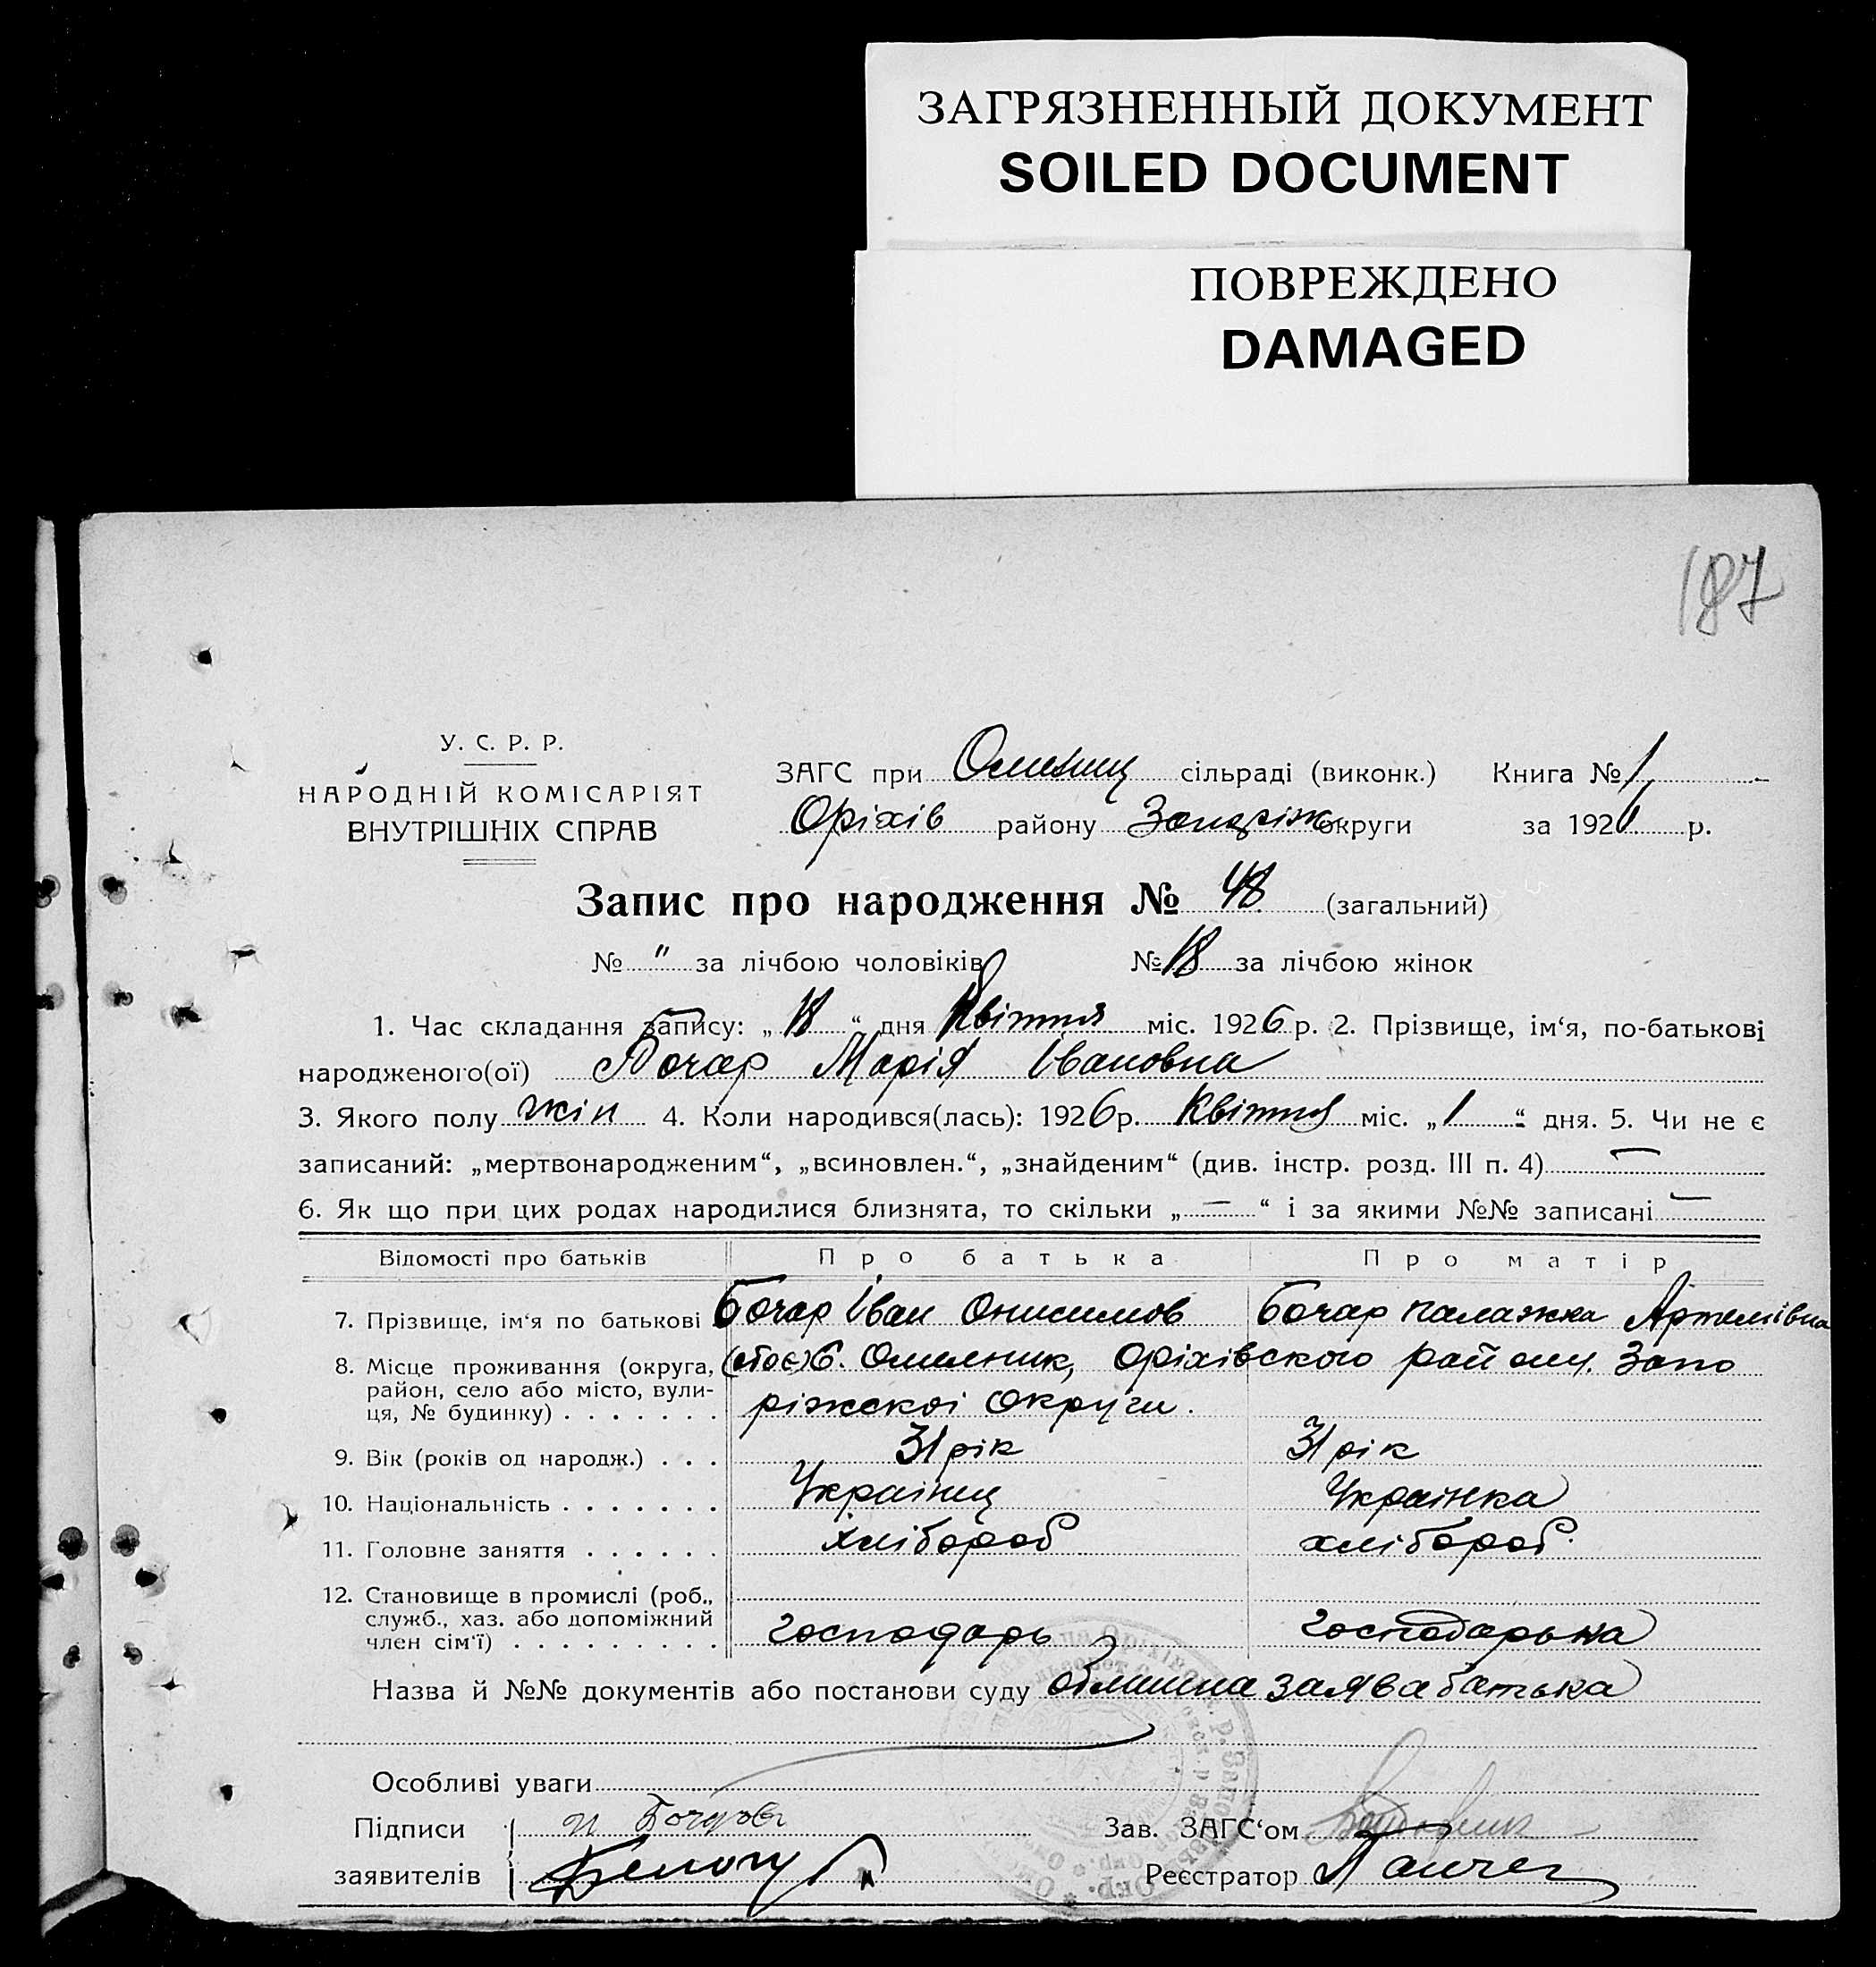 ЗАГРЯЗНЕННЫЙ ДОКУМЕНТ
SOILED DOCUMENT
ПОВРЕЖДЕНО
DAMAGED
187
У. С. Р. Р.
НАРОДНІЙ КОМІСАРІЯТ
ВНУТРІШНІХ СПРАВ
ЗАГС при сільраді (виконк.) Книга № 1
Оріхів району Запоріж округи за 1926 р.
Запис про народження № 48 (загальний)
№ " за лічбою чоловіків № 18 за лічбою жінок
1. Час складання запису: „18“ дня Квітня міс. 1926 р. 2. Прізвище, ім‘я, по-батькові
народженого(ої) Бочар Марія Івановна
3. Якого полу жін 4. Коли народився(лась): 1926 р. Квітня міс. „1“ дня. 5. Чи не є
записаний: „мертвонародженим“, „всиновлен.“, „знайденим“ (див. інстр. розд. III п. 4) —
6. Як що при цих родах народилися близнята, то скільки „—“ і за якими №№ записані —
Відомості про батьків Про батька Про матір
7. Прізвище, ім‘я по батькові Бочар Іван Онисимов Бочар Палажка Артемівна
8. Місце проживання (округа, район, село або місто, вули-ця, № будинку) . . . . . . . Омельник, Оріхівского району. Запо
ріжскої Округи.
9. Вік (років од народж.) . . . 31 рік 31 рік
10. Національність . . . . . . . Українец Українка
11. Головне заняття . . . . . . хлібороб хлібороб.
12. Становище в промислі (роб., служб., хаз. або допоміжний член сім‘ї) . . . . . . . . . господарь господарька
Назва й №№ документів або постанови суду заява батька
Особливі уваги
Підписи Зав. ЗАГС‘ом
заявителів Реєстратор